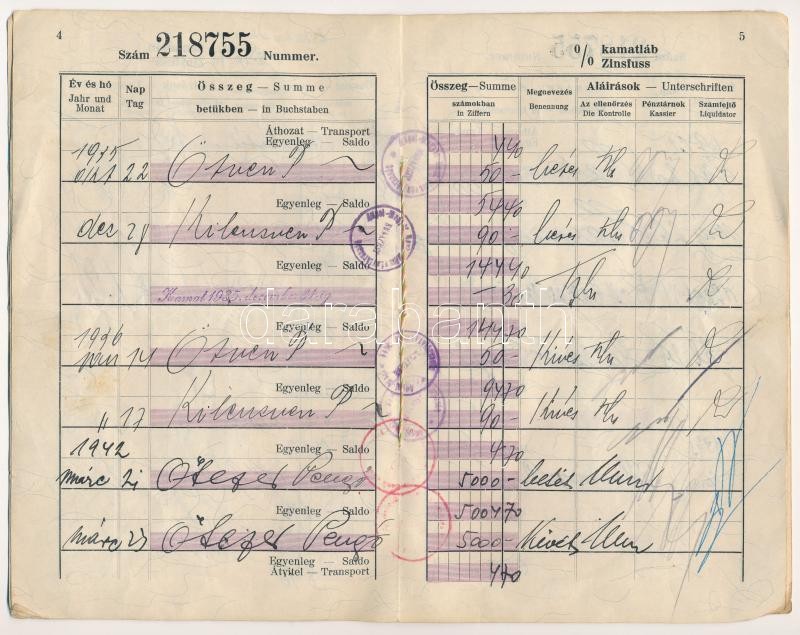 4
Szám 218755 Nummer.
Év és hó
Jahr und
Monat
Nap
Tag
Összeg — Summe
betükben — in Buchstaben
Áthozat — Transport
Egyenleg — Saldo
1935
okt 22 Ötven P
Egyenleg — Saldo
dec 28 Kilencven P
Egyenleg — Saldo
Kamat 1935. december 31-ig
Egyenleg — Saldo
1936
jan 14 Ötven P
Egyenleg — Saldo
" 17 Kilencven P
1942
Egyenleg — Saldo
márc 21 Ötezer Pengő
Egyenleg — Saldo
márc 23 Ötezer Pengő
Egyenleg — Saldo
Átvitel — Transport
5
0/0 kamatláb
Zinsfuss
Összeg — Summe
számokban
in Ziffern
Megnevezés
Benennung
Aláirások — Unterschriften
Az ellenőrzés
Die Kontrolle
Pénztárnok
Kassier
Számfejtő
Liquidator
4 40
50 - betét
54 40
90 - betét
144 40
- 30
144 70
50 - kivét
94 70
90 - kivét
4 70
5000 - betét
5004 70
5000 - kivét
4 70
darabanth